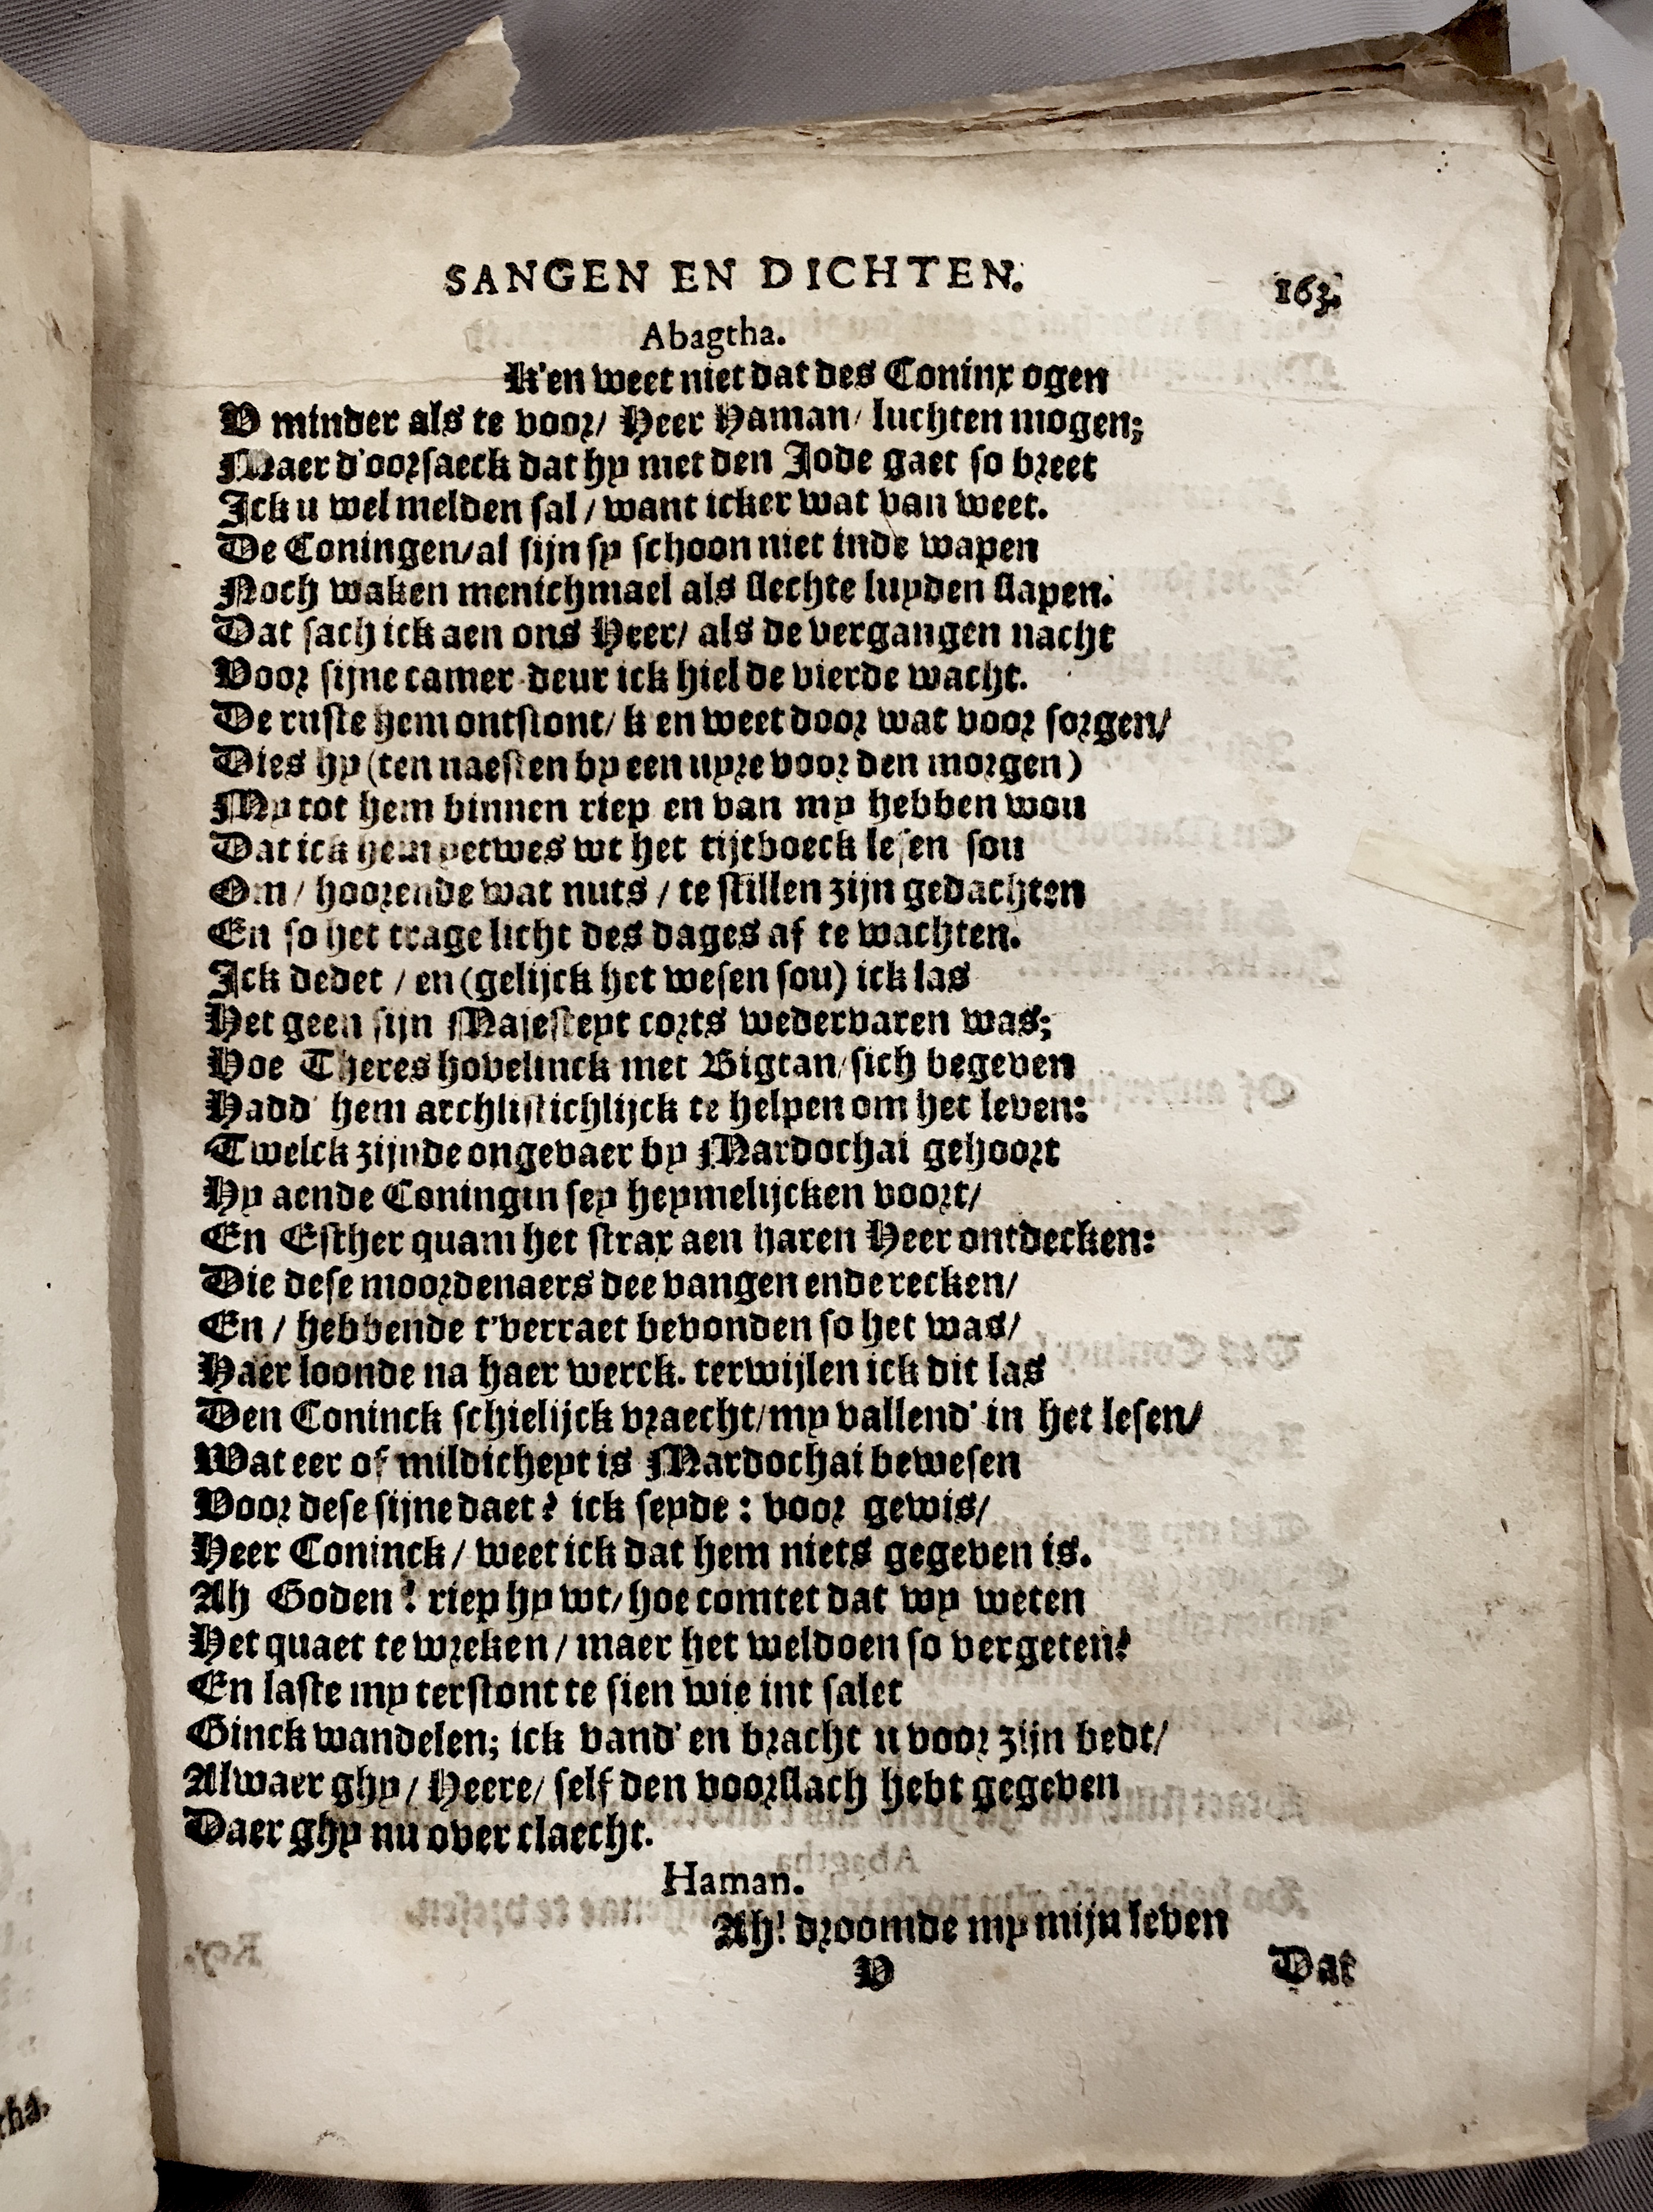 SANGEN EN DICHTEN. 163.
Abagtha.
K'en weet niet dat des Coninx ogen
V minder als te voor/ Heer Haman/ luchten mogen;
Maer d'oorsaeck dat hy met den Jode gaet so breet
Ick u wel melden sal / want icker wat van weet.
De Coningen/al sijn sy schoon niet inde wapen
Noch waken menichmael als slechte luyden slapen.
Dat sach ick aen ons Heer/ als de vergangen nacht
Voor sijne camer-deur ick hiel de vierde wacht.
De ruste hem ontstont/ k'en weet door wat voor sorgen/
Dies hy (ten naesten by een uyre voor den morgen)
My tot hem binnen riep en van my hebben wou
Dat ick hem yetwes wt het tijtboeck lesen sou
Om / hoorende wat nuts / te stillen zijn gedachten
En so het trage licht des dages af te wachten.
Ick dedet / en (gelijck het wesen sou) ick las
Het geen sijn Majesteyt corts wedervaren was;
Hoe Theres hovelinck met Bigtan/sich begeven
Hadd' hem archlistichlijck te helpen om het leven:
Twelck zijnde ongevaer by Mardochai gehoort
Hy aende Coningin sey heymelijcken voort/
En Esther quam het strax aen haren Heer ontdecken:
Die dese moordenaers dee vangen ende recken/
En / hebbende t'verraet bevonden so het was/
Haer loonde na haer werck. terwijlen ick dit las
Den Coninck schielijck vraecht/my vallend' in het lesen/
Wat eer of mildicheyt is Mardochai bewesen
Voor dese sijne daet? ick seyde : voor gewis/
Heer Coninck / weet ick dat hem niets gegeven is.
Ah Goden! riep hy wt/ hoe comtet dat wy weten
Het quaet te wreken / maer het weldoen so vergeten?
En laste my terstont te sien wie int salet
Ginck wandelen; ick vand' en bracht u voor zijn bedt/
Alwaer ghy / Heere/ self den voorslach hebt gegeven
Daer ghy nu over claecht.
Haman.
Ah! droomde my mijn leven
V Dat